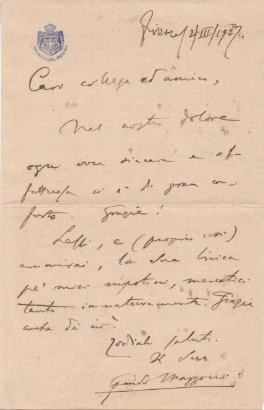 SENATO DEL REGNO
Firenze, 2/III/1927.
Caro collega ed amico,
Nel nostro dolore
ogni voce sincera e af-
fettuosa ci è di gran con-
forto. Grazie!
Lessi, e (proprio così)
ammirai, la Sua lirica
pe' miei nipotini, mancatici
tanto immaturamente. Grazie
anche di ciò!
Cordiali saluti.
Il Suo
Guido Mazzoni